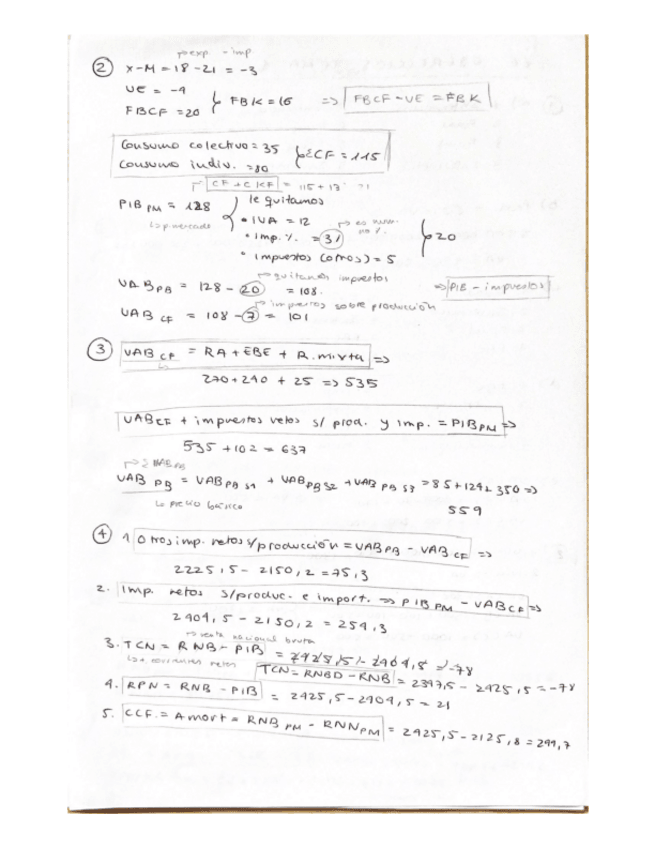 exp. - imp
② X-M = 18-21 = -3
VE = -4
FBCF = 20 } FBK = 16 => FBCF - VE = FBK
Consumo colectivo = 35
Consumo indiv. = 80 } ΣCF = 115
CF + C KF = 115 + 13
PIB PM = 128 } le quitamos
p. mercado
• IVA = 12
• Imp. %. = 3
• Impuestos (otros) = 5 } 20
quitamos impuestos
VAB PB = 128 - 20 = 108. => PIB - impuestos
impuestos sobre producción
VAB CF = 108 - 7 = 101
③ VAB CF = RA + EBE + R. mixta =>
270 + 240 + 25 => 535
VAB CF + impuestos netos s/ prod. y imp. = PIB PM =>
535 + 102 = 637
VAB PB = VAB PB S1 + VAB PB S2 + VAB PB S3 = 85 + 124 + 350 =>
Lo precio básico
559
④ 1 Otros imp. netos s/producción = VAB PB - VAB CF =>
2225,5 - 2150,2 = 75,3
2. Imp. netos s/produc. e import. => PIB PM - VAB CF =>
2404,5 - 2150,2 = 254,3
renta nacional bruta
3. TCN = RNB - PIB = 2425,5 - 2404,5 = -78
corrientes netos
TCN = RNBD - RNB = 2347,5 - 2425,5 = -78
4. RPN = RNB - PIB = 2425,5 - 2404,5 = 21
5. CCF = Amort = RNB PM - RNN PM = 2425,5 - 2125,8 = 299,7